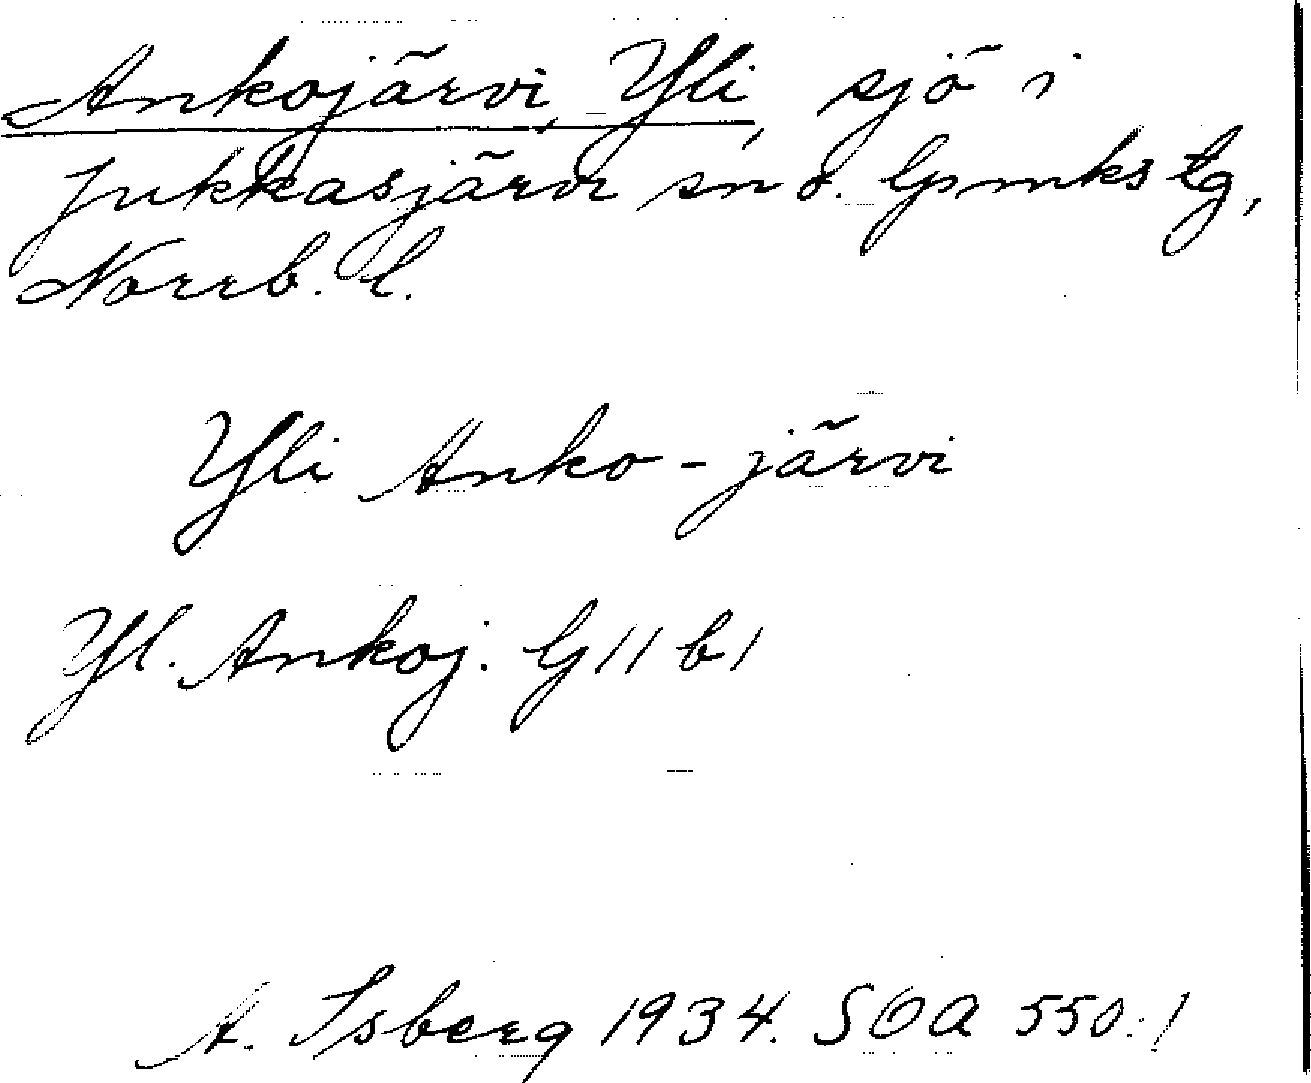 Ankojärvi, Yli, sjö i
Jukkasjärvi sn o. lpmks tg,
Norrb. l.
Yli Anko-järvi
Yl. Ankoj. G 11 b 1
A. Isberg 1934. SOA 550:1